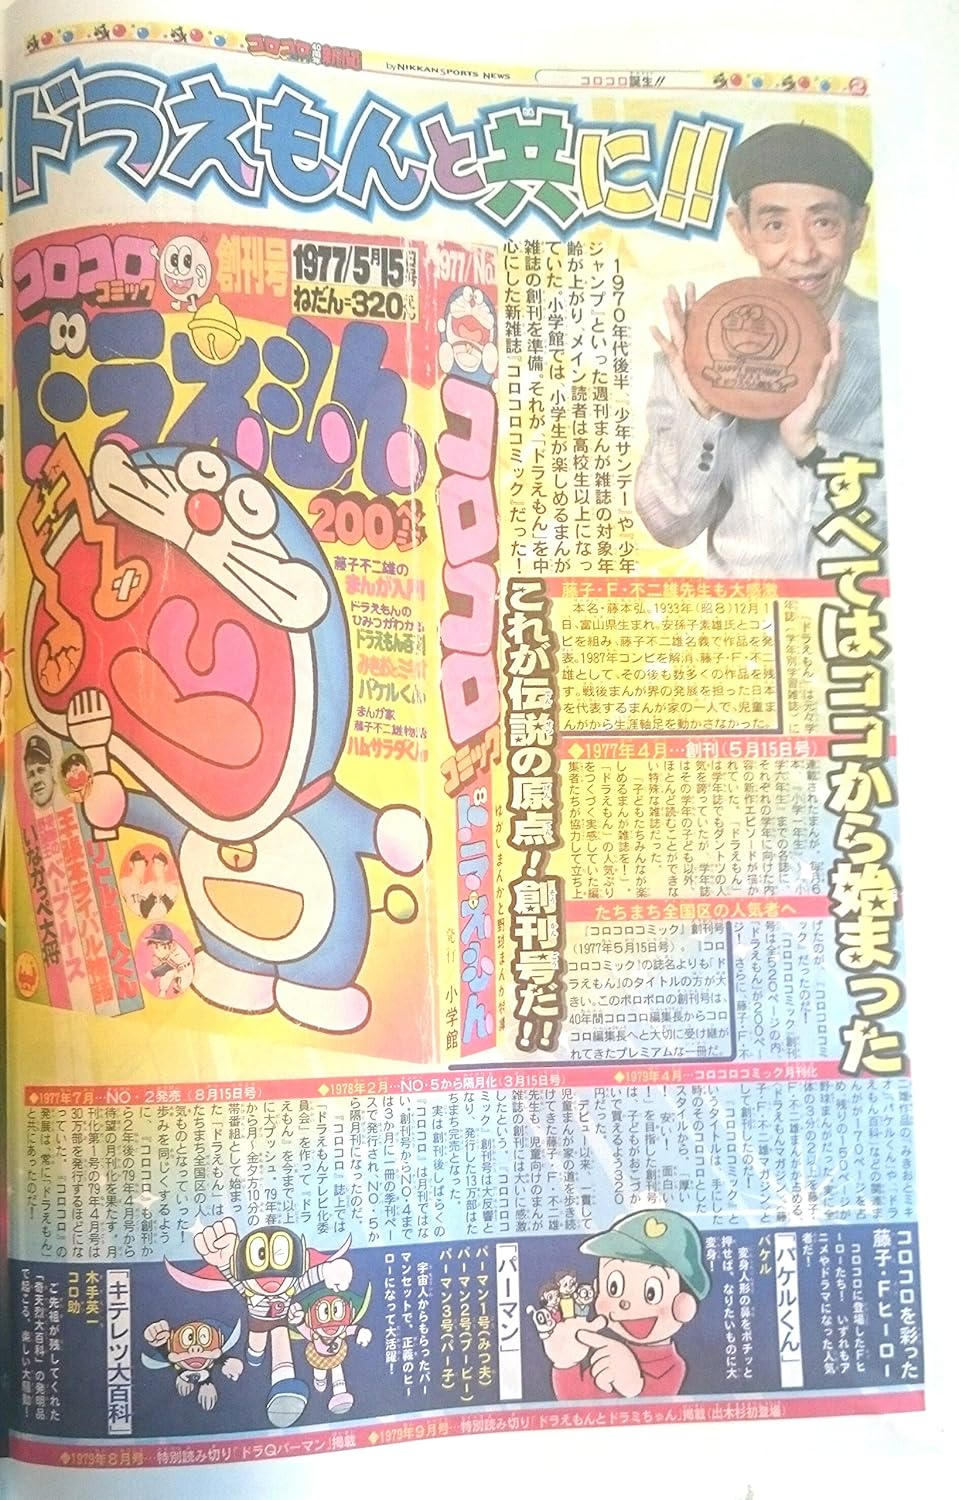 コロコロ40周年新聞
by NIKKAN SPORTS NEWS
コロコロ誕生!!
2
ドラえもんと共に!!
コロコロ
コミック
創刊号
1977/5月15日号
ねだん=320円
ドラえもん
200ページ
藤子不二雄の
まんが入門
ドラえもんの
ひみつがわかる
ドラえもん百科
バケルくん
まんが家
藤子不二雄物語
ハムサラダくん
いなかっぺ大将
1977/No.1
コロコロ
コミック
ドラえもん
発行 小学館
HAPPY BIRTHDAY
1970年代後半、『少年サンデー』や『少年
ジャンプ』といった週刊まんが雑誌の対象年
齢が上がり、メイン読者は高校生以上になっ
ていた。小学館では、小学生が楽しめるまんが
雑誌の創刊を準備。それが、「ドラえもん」を中
心にした新雑誌『コロコロコミック』だった!
すべてはココから始まった
これが伝説の原点!創刊号だ!!
藤子・F・不二雄先生も大感激
本名・藤本弘。1933年(昭8)12月1
日、富山県生まれ。安孫子素雄氏とコン
ビを組み、藤子不二雄名義で作品を発
表。1987年コンビを解消、藤子・F・不二
雄として、その後も数多くの作品を残
す。戦後まんが界の発展を担った日本
を代表するまんが家の一人で、児童ま
んがから生涯軸足を動かさなかった。
◆1977年4月…創刊(5月15日号)
「ドラえもん」は元々学
年誌(学年別学習雑誌)に
連載されたまんが。毎月6
本、『小学一年生』〜『小
学六年生』までの各誌に、
それぞれの学年に向けた内
容の新作エピソードが描か
れていた。「ドラえもん」
は学年誌でもダントツの人
気を誇っていたが、学年誌
はその学年の子ども以外、
ほとんど読むことができな
い特殊な雑誌だった。
「子どもたちみんなが楽
しめるまんが雑誌を!」。
「ドラえもん」の人気ぶり
をつくづく実感していた編
集者たちが協力して立ち上
たちまち全国区の人気者へ
『コロコロコミック』創刊号
(1977年5月15日号)。『コロ
コロコミック』の誌名よりも「ド
ラえもん」のタイトルの方が大
きい。このボロボロの創刊号は、
40年間コロコロ編集長からコロ
コロ編集長へと大切に受け継が
れてきたプレミアムな一冊だ。
げたのが、『コロコロコミ
ック』だったのだ!
『コロコロコミック』創刊
号は全520ページの内、
「ドラえもん」が200ペー
ジ!さらに、藤子・F・不
◆1979年4月…コロコロコミック月刊化
◆1978年2月…NO・5から隔月化(3月15日号)
◆1977年7月…NO・2発売(8月15日号)
二雄作品の「みきおとミキ
オ」「バケルくん」や「ドラ
えもん百科」などの笑まま
んがが170ページを占
め、残りの150ページが
野球まんがだった。実に全
体の3分の2以上を藤子・
F・不二雄まんがが占める、
「藤子・F・不二雄マガジン」
「ドラえもんマガジン」と
して創刊したのだ!
『コロコロコミック』と
いうタイトルは、手にした
スタイルから。「厚い!
安い!面白い!」を目指した創刊号
は、子どもがおこづか
いで買えるよう320
円だった。
デビュー以来、一貫して
児童まんが家の道を歩き続
けてきた藤子・F・不二雄
先生も、児童向けのまんが
雑誌の創刊には大いに感激
したという。『コロコロコ
ミック』創刊号は大反響と
なり、発行した13万部はた
ちまち完売となった。
実は創刊後しばらくの
『コロコロ』は月刊ではな
い。創刊号からNO・4まで
は3か月に一冊の季刊ペー
スで発行され、NO・5か
ら隔月刊になったのだ。
『コロコロ』誌上では
「ドラえもんテレビ化委
員会」を作って「ドラ
えもん」を今まで以上
に大プッシュ。79年春
から月〜金夕方10分の
帯番組として始まっ
た「ドラえもん」は、
たちまち全国区の人
気ものとなっていった!
『コロコロ』も創刊か
ら2年後の79年4月号から
待望の月刊化を果たす。月
刊化第1号の79年4月号は
30万部を発行するほどにな
っていた。『コロコロ』の
発展は、常に「ドラえもん」
と共にあったのだ!
コロコロを彩った
藤子・Fヒーロー
コロコロに登場したFヒ
ーローたち!いずれもア
ニメやドラマになった人気
者だ!
「バケルくん」
バケル
変身人形の鼻をポチッと
押せば、なりたいものに大
変身!
「パーマン」
パーマン1号(みつ夫)
パーマン2号(ブービー)
パーマン3号(パー子)
宇宙人からもらったパー
マンセットで、正義のヒー
ローになって大活躍!
「キテレツ大百科」
木手英一
コロ助
ご先祖が残してくれた
「奇天烈大百科」の発明品
で起こる、楽しい大騒動!
◆1979年9月号…特別読み切り「ドラえもんとドラミちゃん」掲載(出木杉初登場)
◆1979年8月号…特別読み切り「ドラQパーマン」掲載